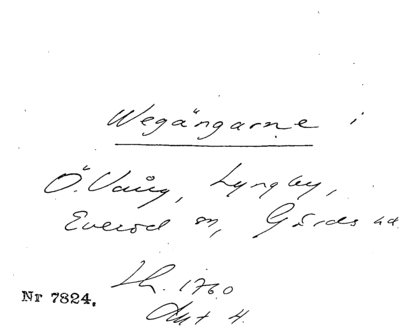 Wegängarne i
Ö. Vång, Lyngby,
Everöd sn, Gärds hd.
Lh. 1760
Akt 4.
Nr 7824.